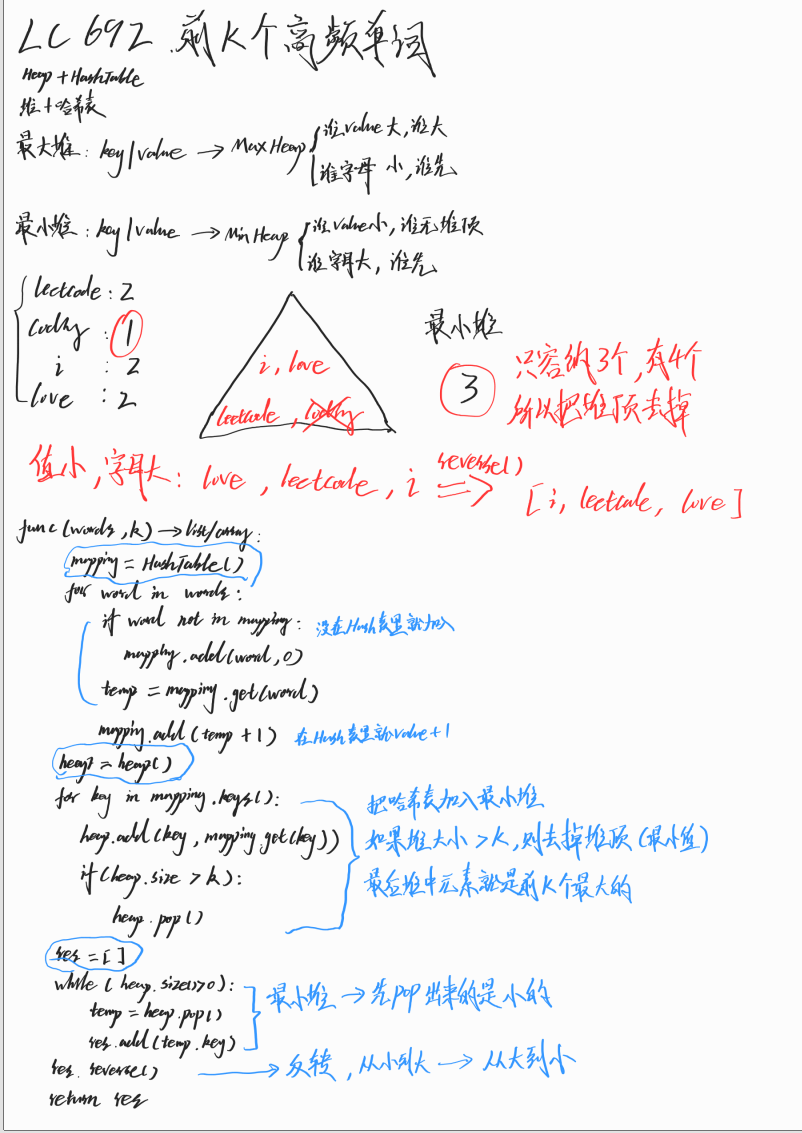 LC 692 .前K个高频单词
Heap + HashTable
堆+哈希表
最大堆: key/value → Max Heap { 谁value大,谁大
谁字母 小,谁先
最小堆: key/value → Min Heap { 谁value小,谁先堆顶
谁字母大,谁先
leetcode : 2
coding : 1
i : 2
love : 2
i, love
leetcode, coding
最小堆
3 只容纳3个,有4个
所以把堆顶去掉
值小,字母大: love , leetcode , i reverse() => [i, leetcode, love]
func(words,k) → list/array:
mapping = HashTable()
for word in words:
if word not in mapping: 没在Hash表里就加入
mapping.add(word,0)
temp = mapping.get(word)
mapping.add(temp+1) 在Hash表里就value+1
heap = heap()
for key in mapping.keys(): 把哈希表加入最小堆
heap.add(key, mapping.get(key)) 如果堆大小>K,则去掉堆顶(最小值)
if(heap.size > k): 最后堆中元素就是前K个最大的
heap.pop()
res = []
while(heap.size()>0): 最小堆 → 先pop出来的是小的
temp = heap.pop()
res.add(temp.key)
res.reverse() → 反转,从小到大 → 从大到小
return res